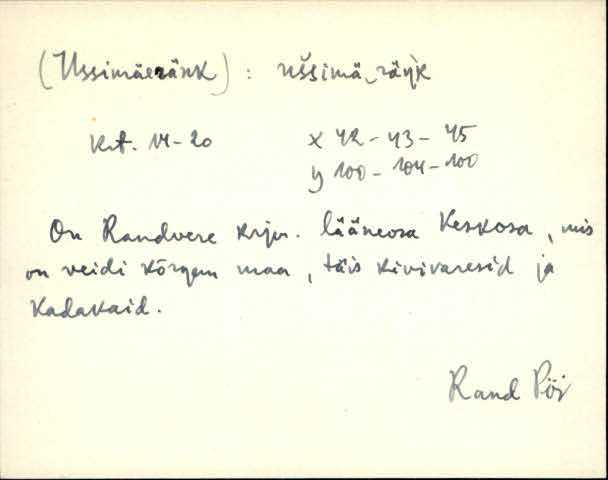 (Ussimäeränk) : uššimä_räŋ̀k
krt. 14-20 x 42 - 43 - 45
y 100 - 104 - 100
On Randvere krju. lääneosa keskosa, mis
on veidi kõrgem maa, täis kivivaresid ja
kadakaid.
Rand Pöi